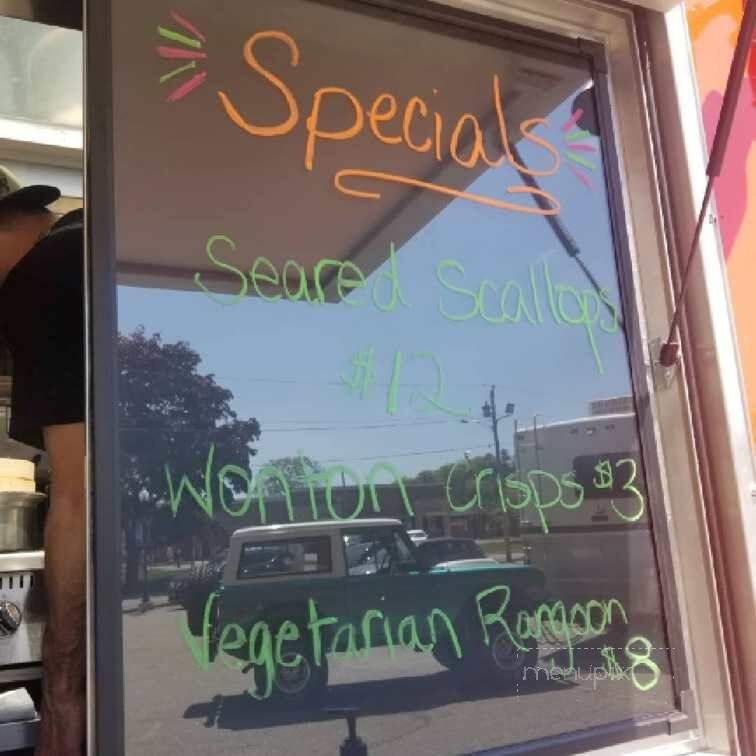 Specials
Seared Scallops
$12
Wonton Crisps $3
Vegetarian Rangoon
$8
menupix